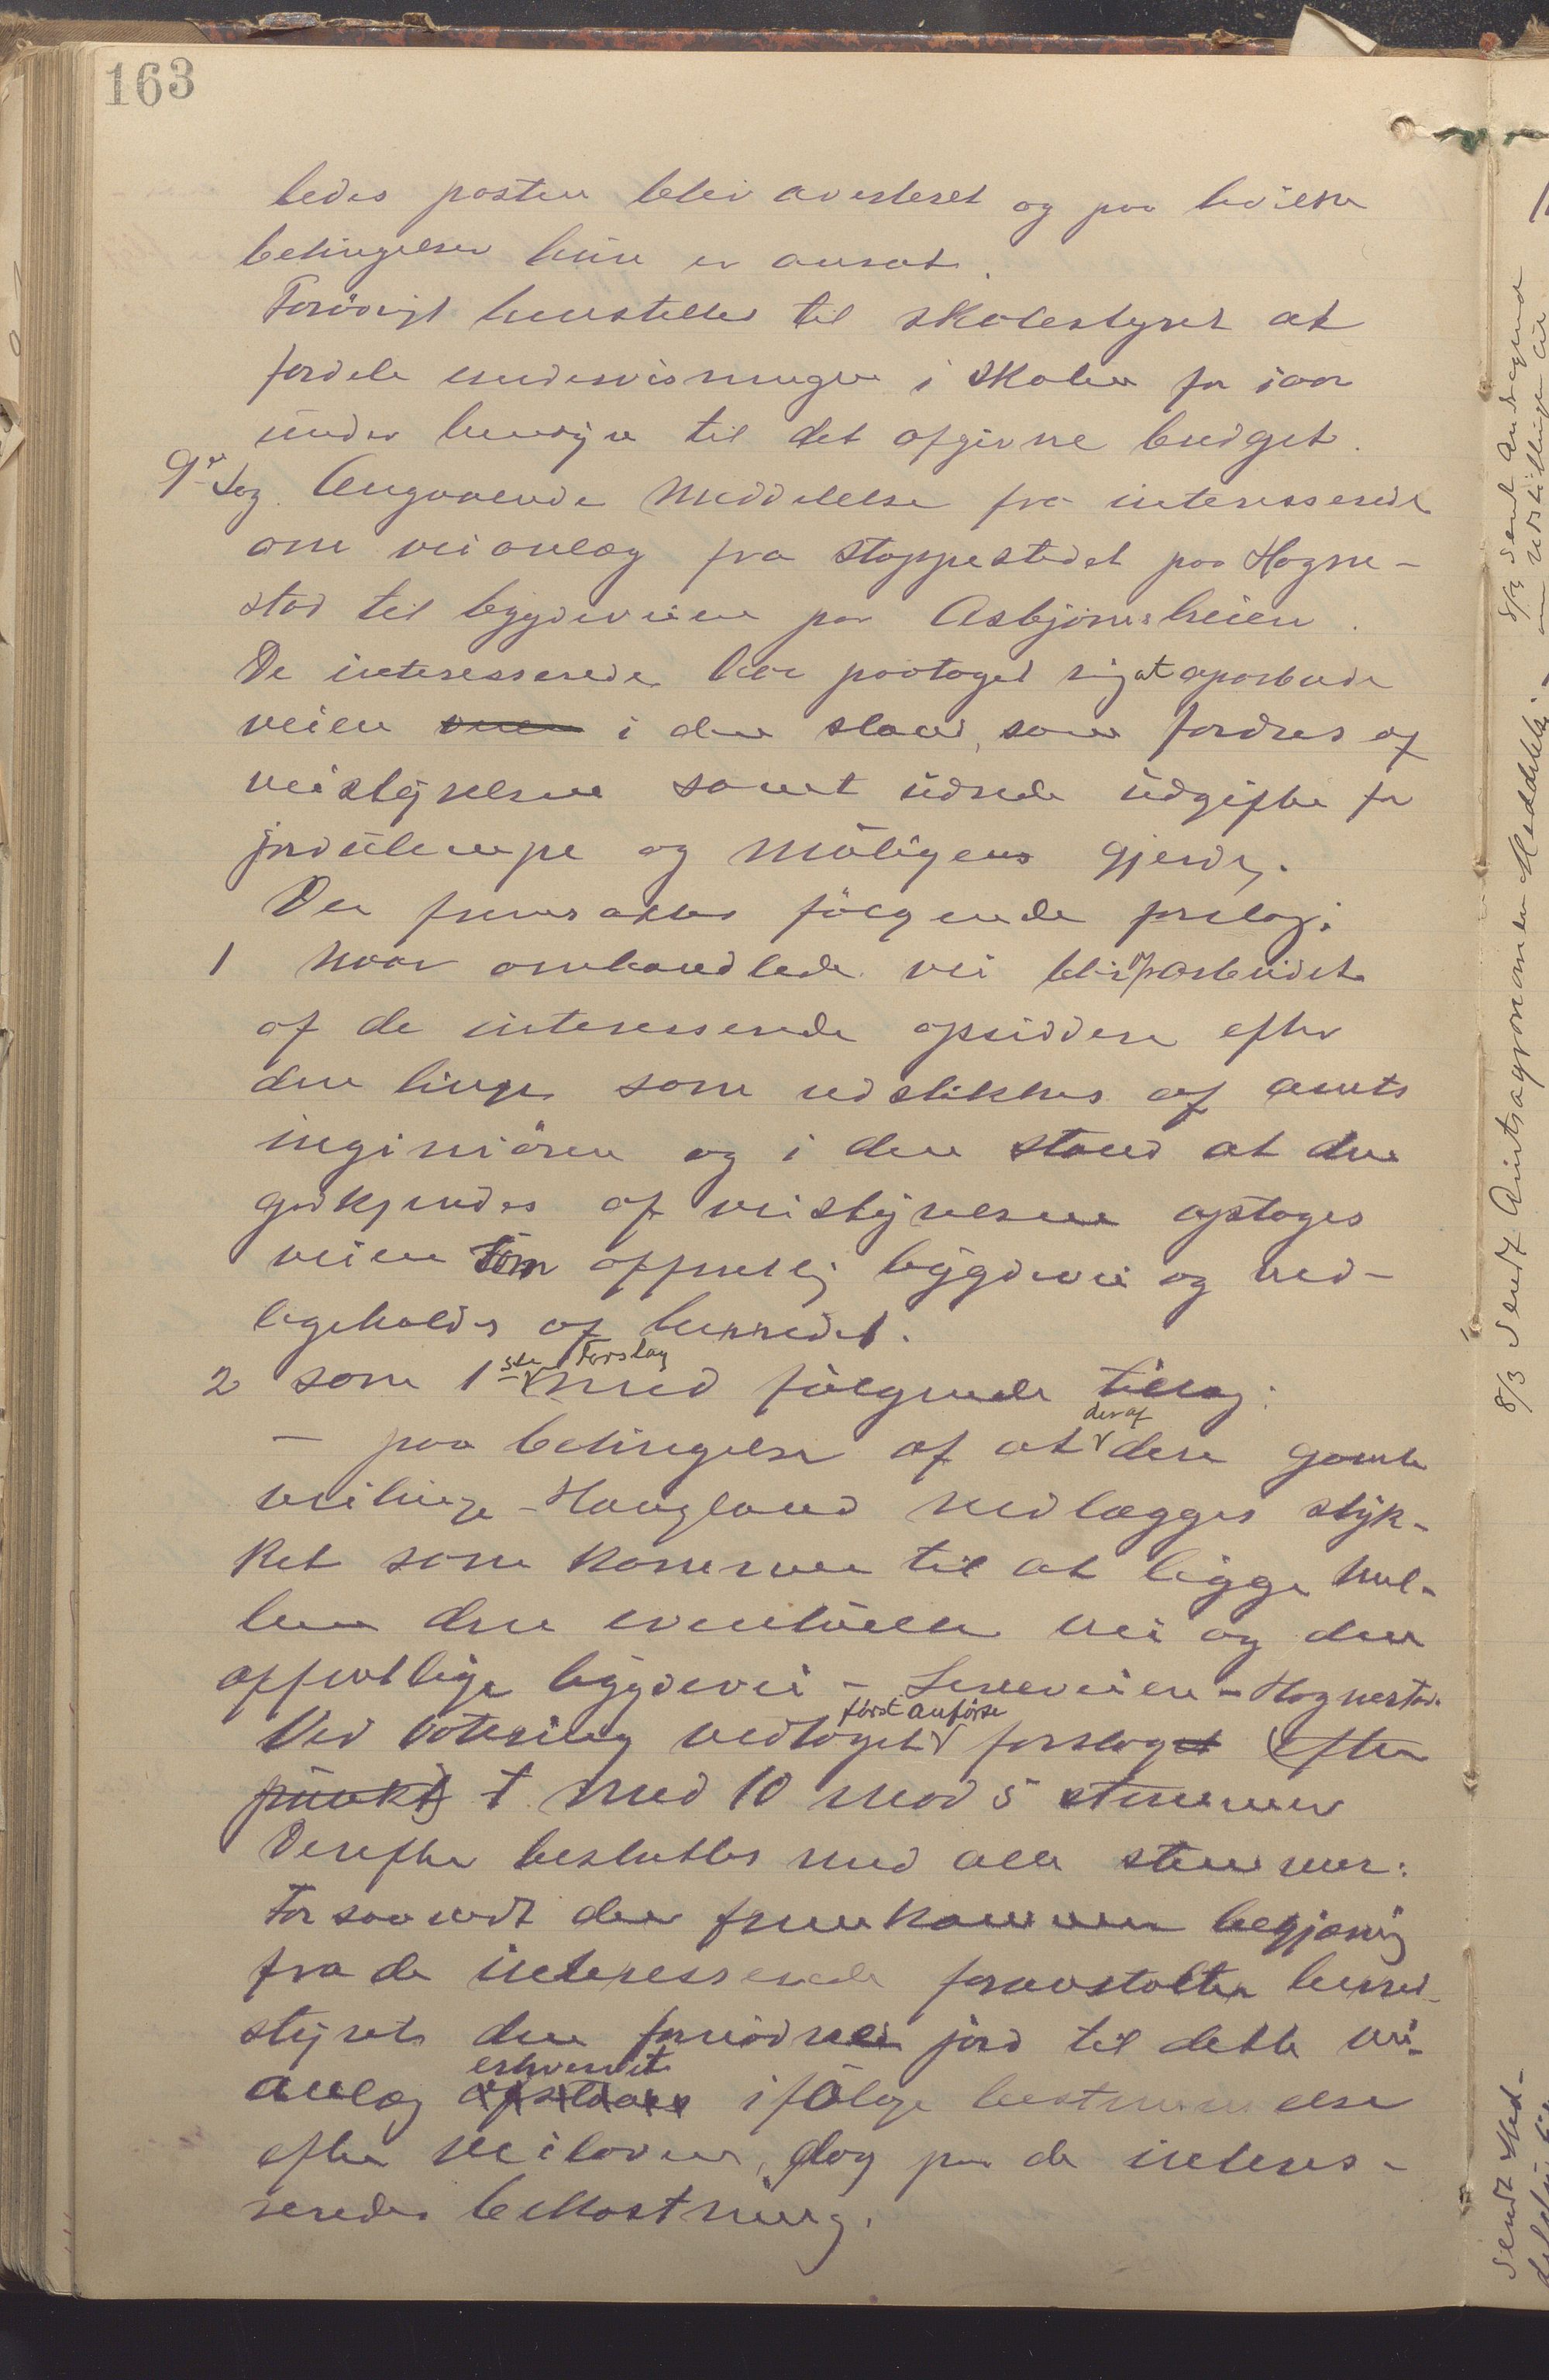 163
ledes posten blev averteret og paa hvilke
betingelser hun er ansat.
Forövrigt henstilles til skolestyret at
fordele undervisningen i skolen for iaar
under hensyn til det afgivne budget.
9de Sag. Angaaende Meddelelse fra interesserede
om veianlæg fra stoppestedet paa Hogne-
stad til bygdeveien paa Asbjörnsheien.
De interesserede har paataget sig at oparbeide
veien i den stand, som fordres af
veistyrelsen samt udrede udgifter for
jordulempe og muligens gjerde.
Der fremsattes fölgende forslag:
1 Naar omhandlede vei blir oparbeidet
af de interesserede opsiddere efter
den linje som udstikkes af amts
ingeniören og i den stand at den
godkjendes af veistyrelsen optages
veien som offentlig bygdevei og ved-
ligeholdes af herredet.
2 som 1ste Forslag med fölgende tillæg:
- paa betingelse af at deraf den gamle
veilinje - Haugland nedlægges styk-
ket som kommer til at ligge mel-
lem den eventuelle vei og den
offentlige bygdevei - Hognestad.
Ved votering vedtoges först anförte forslag efter
punkt 1 med 10 mod 5 stemmer
Derefter besluttes med alle stemmer:
Forsaavidt der fremkommer begjæring
fra de interesserede foranstalter herred-
styret den fornödne jord til dette vei-
anlæg erhvervet ifölge bestemmelse
efter veiloven, dog paa de interes-
seredes bekostning.
8/3 Sendt Amtsagronomen Meddelelse
8/3 sendt Andragende
Sendt Med-